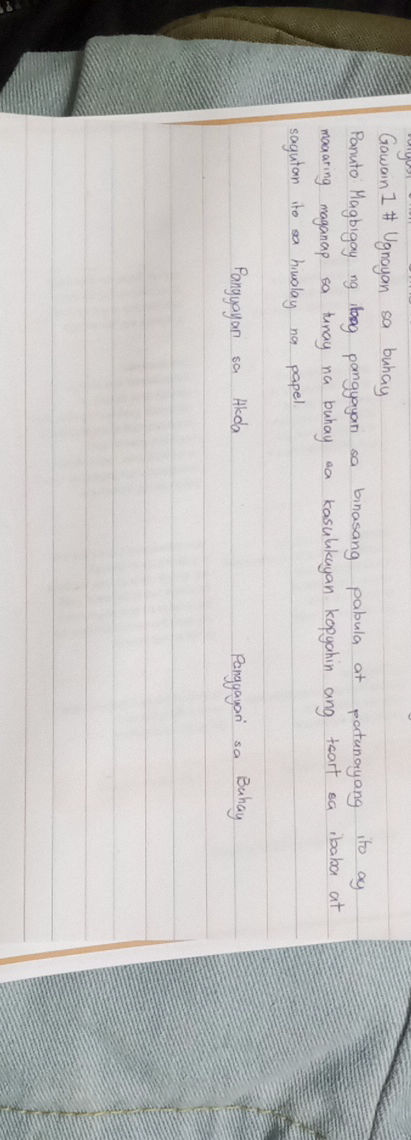 Gawain 1 # Ugnayan sa buhay
Panuto Magbigay ng ibag pangyayari sa binasang pabula at patunayang ito ay
maaring maganap sa tunay na buhay sa kasulukuyan kopyahin ang tsart sa ibaba at
sagutan ito sa hiwalay na papel
Pangyayari sa Akda Pangyayari sa Buhay